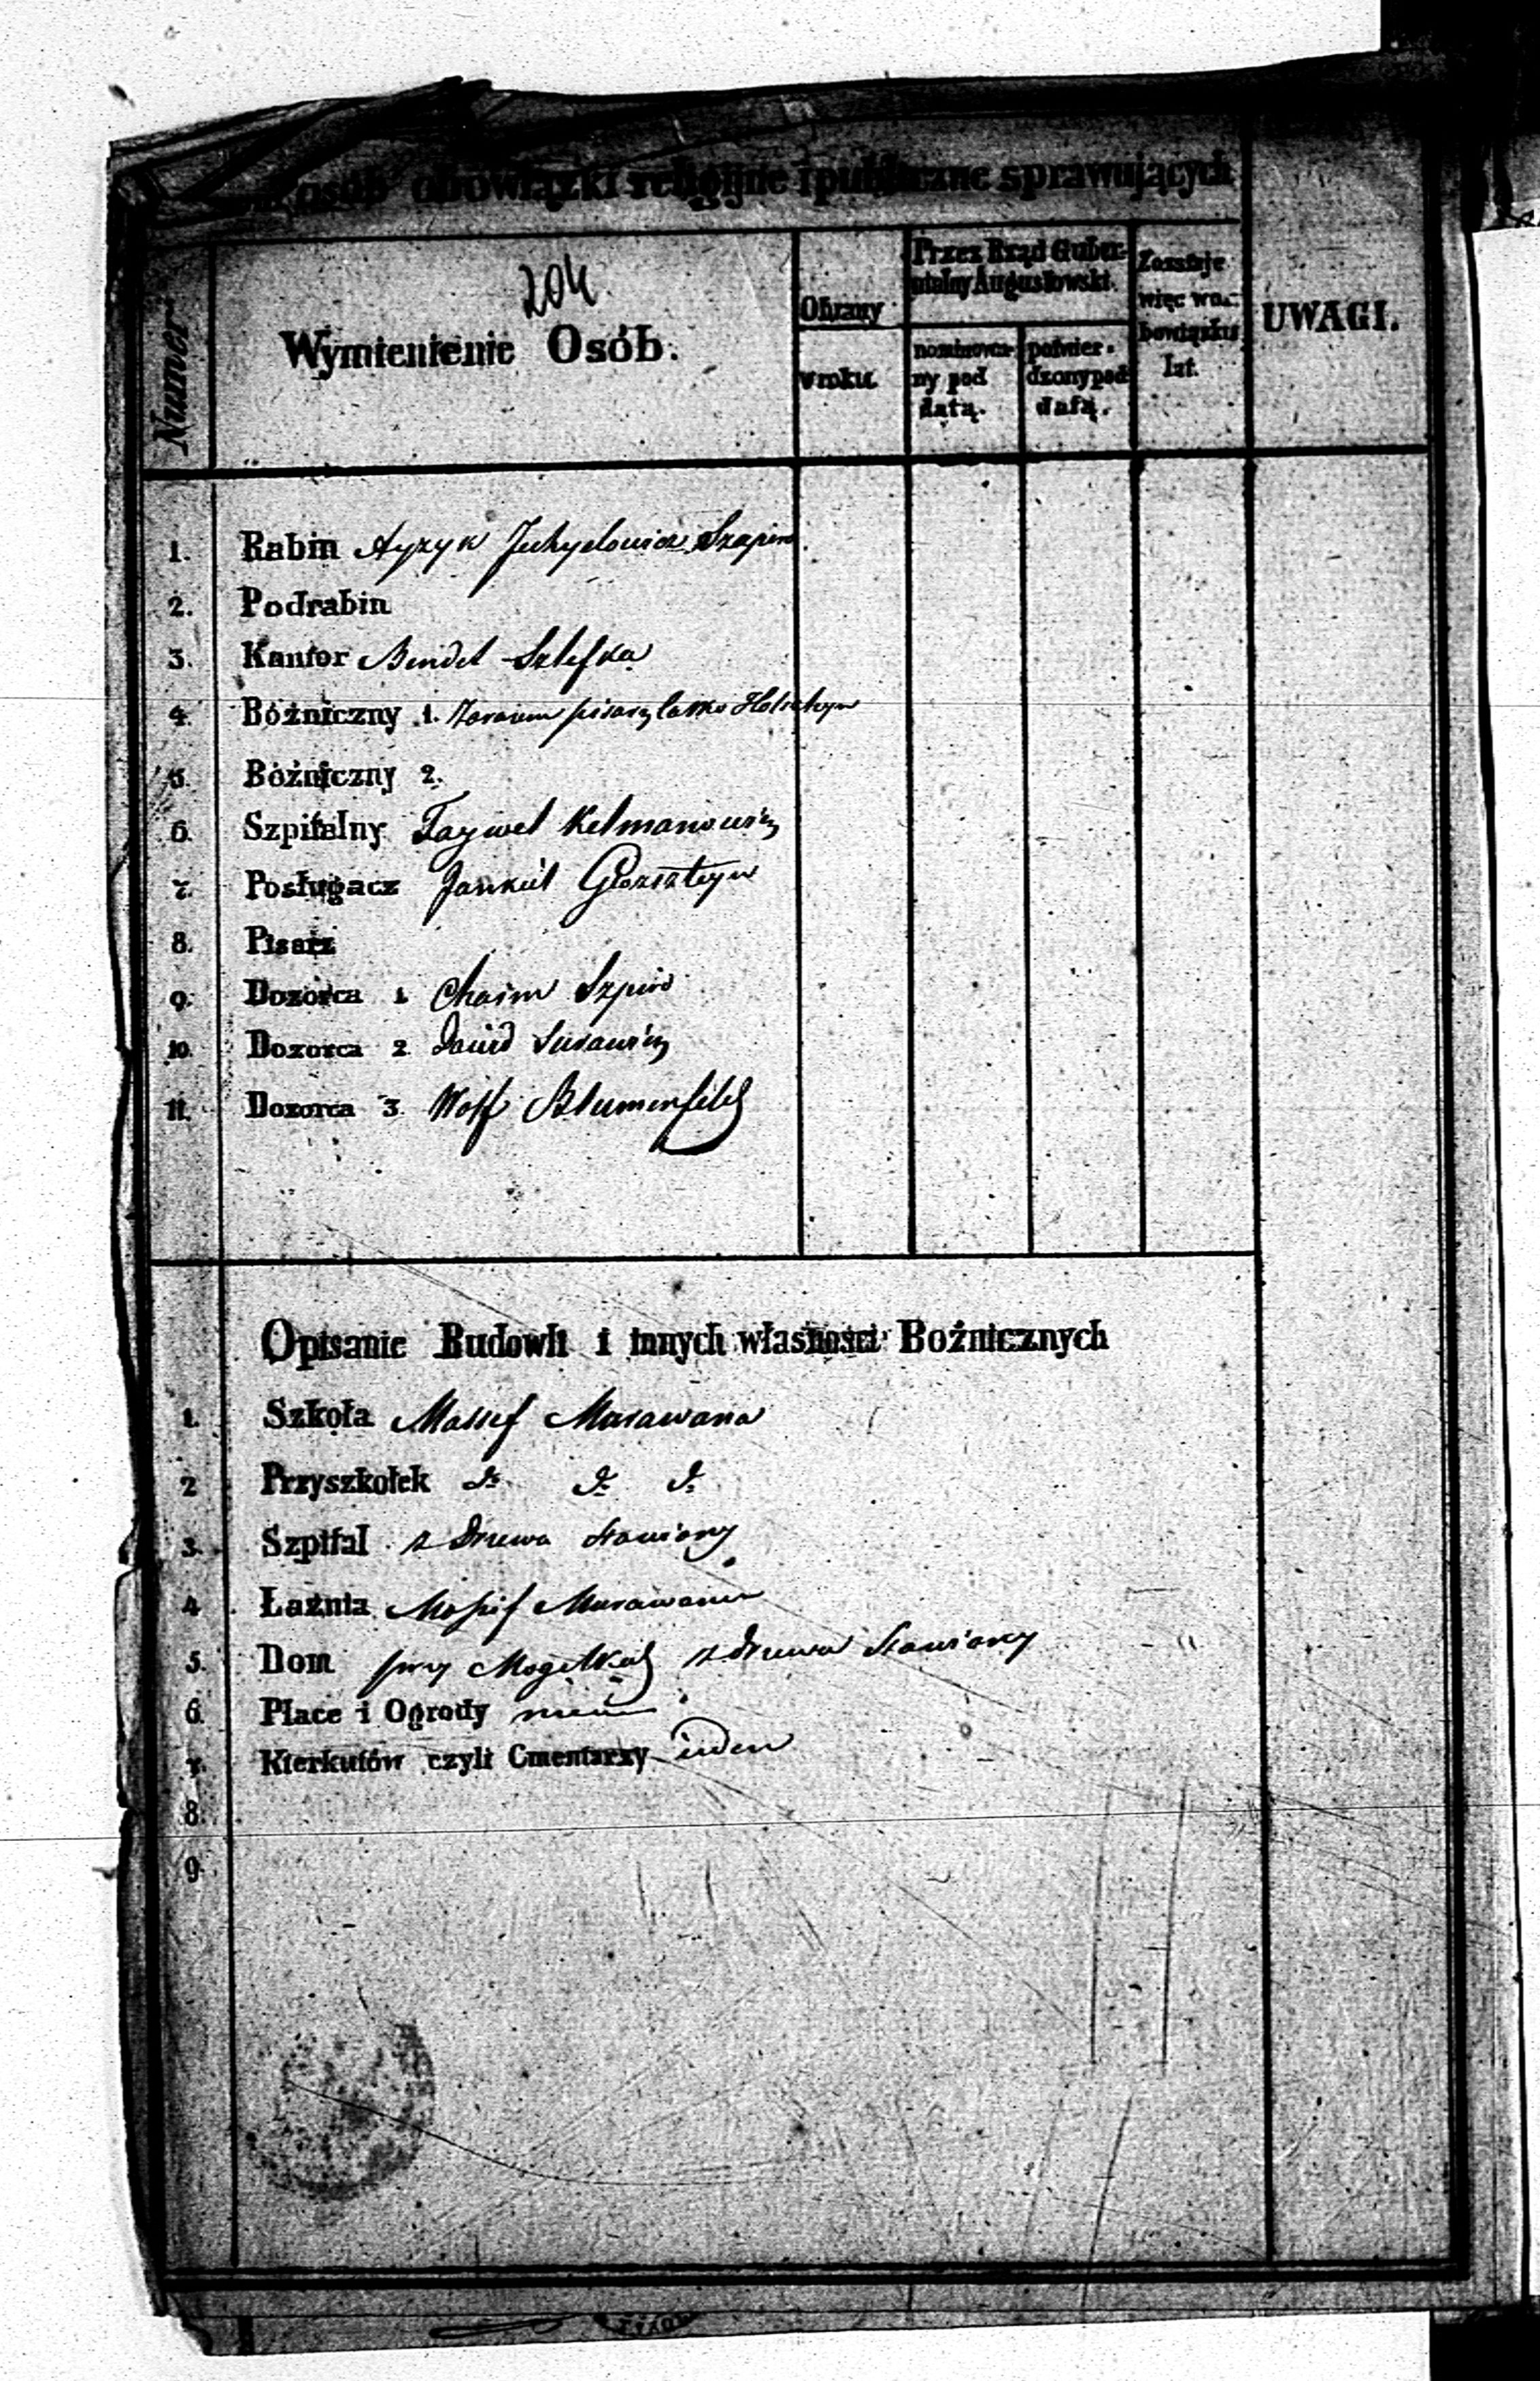 osób obowiązki religijne i publiczne sprawujących
Numer
204.
Wymienienie Osób.
Obrany
w roku.
Przez Rząd Guber-
nialny Augustowski.
nominowa-
ny pod
datą.
potwier-
dzony pod
datą.
Zostaje
więc w o-
bowiązku
lat.
UWAGI.
1. Rabin Ayzyk Jchyelowicz Szapiro
2. Podrabin
3. Kantor Bendet Szlefka
4. Bóżniczny 1. zarazem pisarz
5. Bóżniczny 2.
6. Szpitalny Faywel Kelmanowicz
7. Posługacz Jankiel
8. Pisarz
9. Dozorca 1 Chaim Szpiro
10. Dozorca 2 Dawid Surawicz
11. Dozorca 3. Wolf Blumenfeld
Opisanie Budowli i innych własności Boźnicznych
1. Szkoła Massif Murawana
2 Przyszkołek do do do
3. Szpital z Drzewa Stawiany
4 Łaźnia Massif Murawana
5. Dom przy Mogiłkach z drzewa Stawiany
6. Place i Ogrody niema
7. Kierkutów czyli Cmentarzy ieden
8.
9.